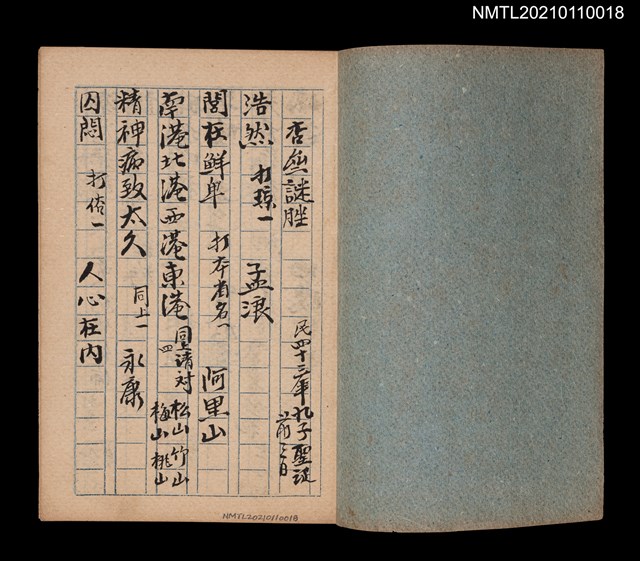 NMTL20210110018
杏盦謎脞 民四十三年孔子聖誕前三日
浩然 打璟一 孟浪
閣在鮮卑 打本省名一 阿里山
南港北港西港東港 同上請对四 松山竹山梅山桃山
精神痛致太久 同上一 永康
囚悶 打俗一 人心在内
NMTL20210110018